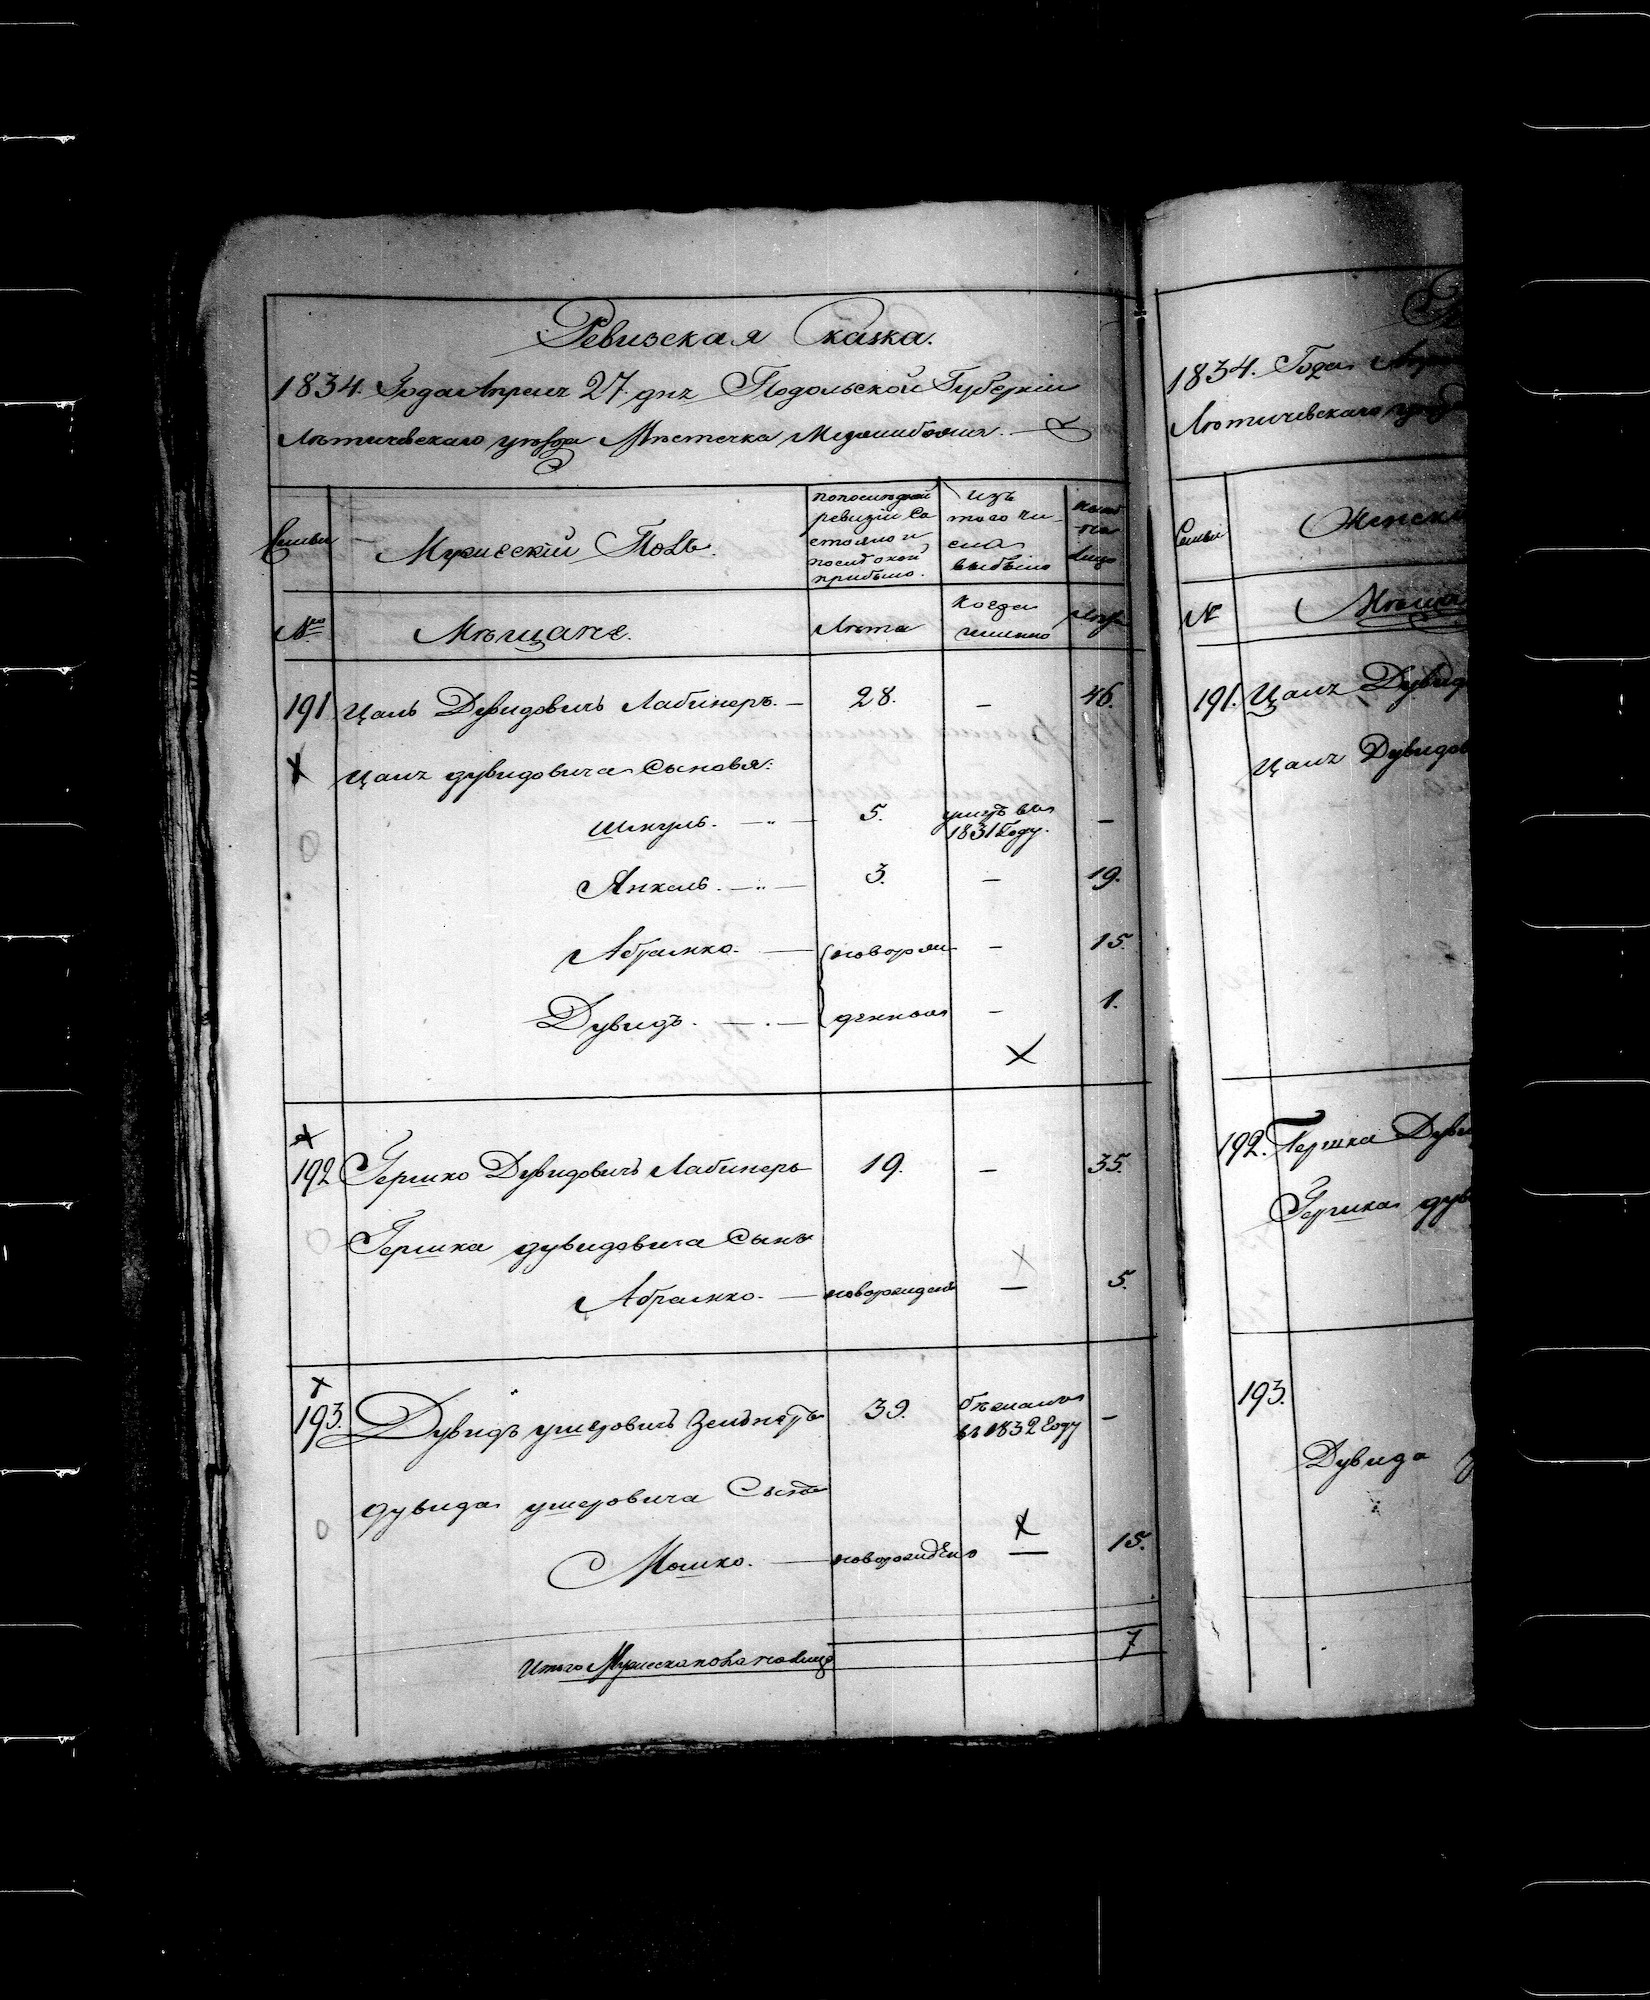 Ревизская Сказка.
1834. Года Апреля 27. дня Подольской Губернiи
Лѣтичевскаго уѣзда Мѣстечка Меджибожа.
Семьи
Мужескiй Полъ.
по последней ревизiи Со
стояло и
после оной
прибыло.
Изъ
того чи-
сла
выбыло
Ныне
на
лицо
№
Мѣщане.
Лѣта
Когда
именно
Лѣта
191 Цаль Дувидовичъ Лабинеръ. — 28. — 46.
Х Цаля дувидовича Сыновья:
Шмуль. — 5. умеръ въ
1831 Году. —
Янкель. — 3. — 19.
Абрамко. — новорож — 15.
Дувидъ. — денные — 1.
Х
Х
192 Гершко Дувидовичъ Лабинеръ 19. — 35.
Гершка дувидовича Сынъ
Х
Абрамко. — новорожденъ — 5.
Х
193. Дувидъ ушеровичъ 39. бежалъ
въ 1832 Году —
дувида ушеровича Сынъ
Х
Мошко. — новорожденъ — 15.
Итого Мужеска пола на лицо 7
1834. Года
Лѣтичевскаго
Семьи
Женск
№
Мѣща
191. Цаля Дувид
Цаля Дувидов
192. Гершка Дуви
Гершка дув
193.
Дувида